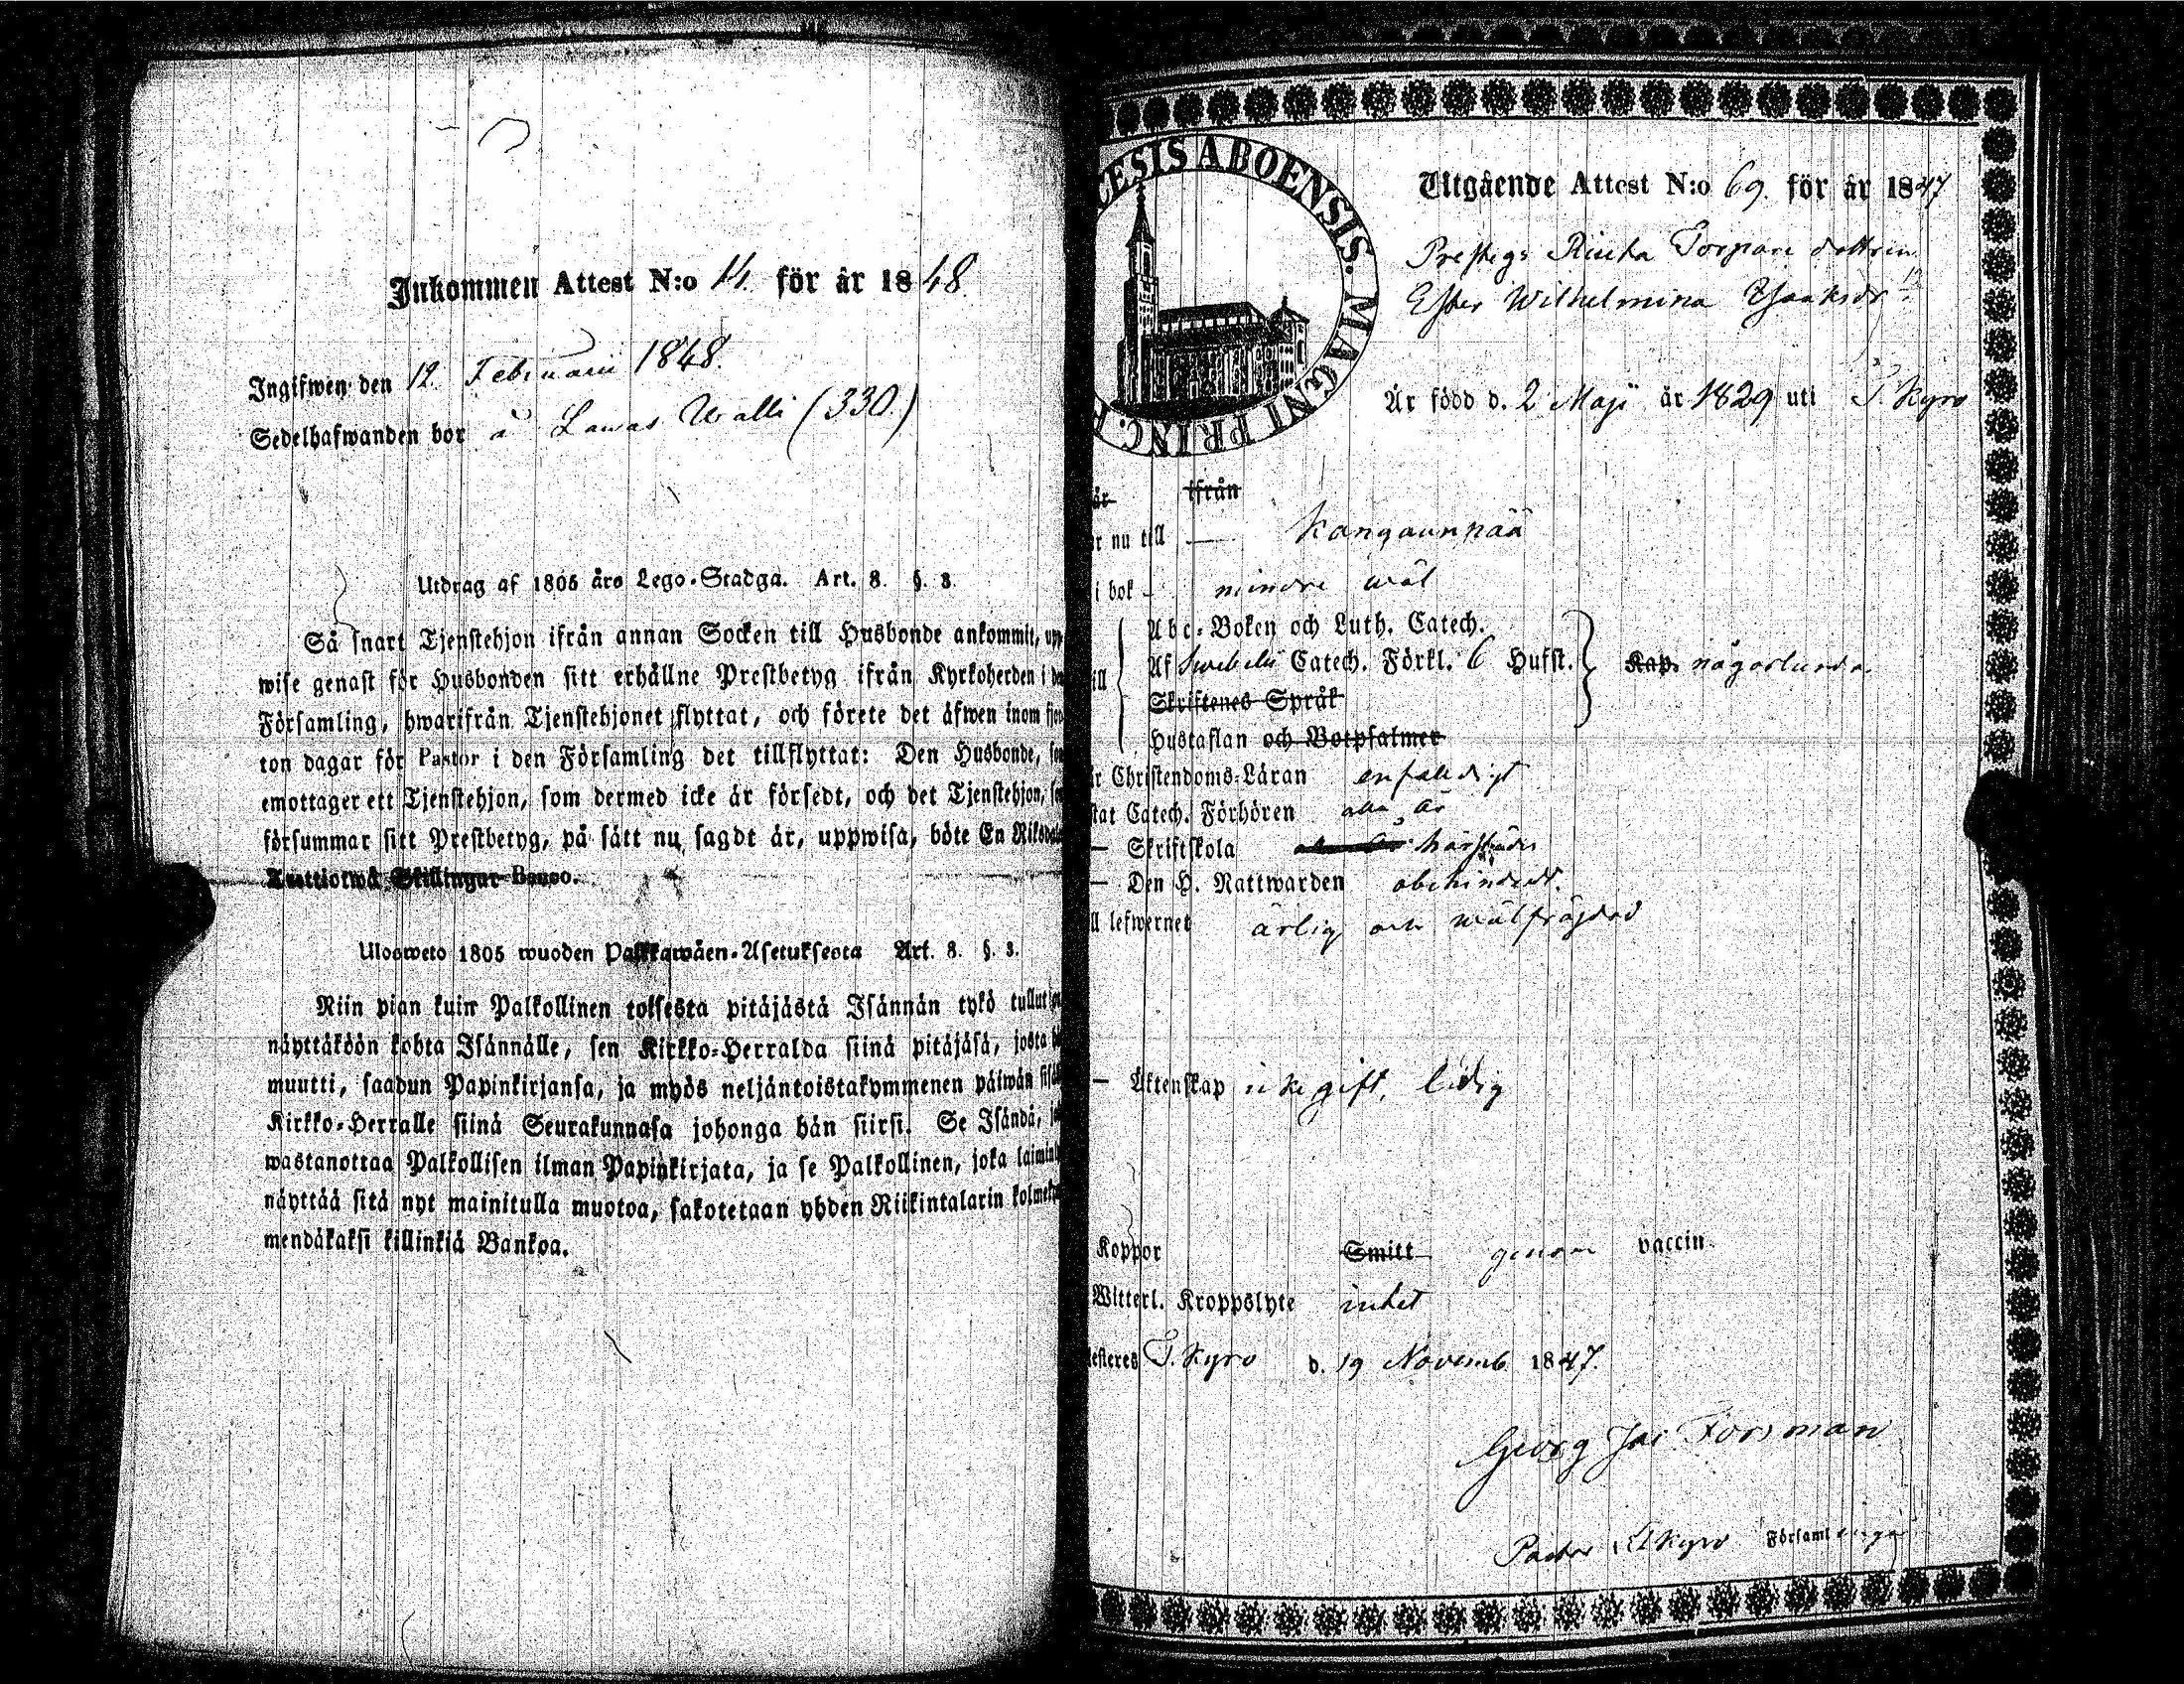 Inkommen Attest N:o 14. för år 1848.
Ingifwen den 12. Februarii 1848.
Sedelhafwanden bor å Lawas Walli (330.)
Utdrag af 1805 års Lego-Stadga. Art. 8. §. 3.
Så snart Tjenstehjon ifrån annan Socken till Husbonde ankommit, upp
wise genast för Husbonden sitt erhållne Prestbetyg ifrån Kyrkoherden i den
Församling, hwarifrån Tjenstehjonet flyttat, och förete det äfwen inom fjor
ton dagar för Pastor i den Församling det tillflyttat: Den Husbonde, som
emottager ett Tjenstehjon, som dermed icke är försedt, och det Tjenstehjon, som
försummar sitt Prestbetyg, på sätt nu sagdt är, uppwisa, böte En Riksdaler
Trettiotwå Skillingar Banco.
Ulosweto 1805 wuoden Palkkawäen-Asetuksesta Art. 8. §. 3.
Niin pian kuin Palkollinen toisesta pitäjästä Isännän tykö tullut on
näyttäköön kohta Isännälle, sen Kirkko-Herralda siinä pitäjäsä, josta hän
muutti, saadun Papinkirjansa, ja myös neljäntoistakymmenen päiwän sisällä
Kirkko-Herralle siinä Seurakunnasa johonga hän siirsi. Se Isändä, joka
wastanottaa Palkollisen ilman Papinkirjata, ja se Palkollinen, joka laiminlyö
näyttää sitä nyt mainitulla muotoa, sakotetaan yhden Riikintalarin kolmekym
mendäkaksi killinkiä Bankoa.
CESIS ABOENSIS. MAGNI PRINC. F
Utgående Attest N:o 69. för år 1847
Prestegs Rinta Torpare dottren
Ester Wilhelmina Isaksdr
Är född d. 2 Maji år 1829 uti T. Kyro
är ifrån
r nu till — Kangaanpää
i bok mindre wäl
Abc-Boken och Luth. Catech.
ill Af Swebelii Catech. Förkl. 6 Hufst. Kap. någorlunda.
Skriftenes Språk
Hustaflan och Botpsalmer
r Christendoms-Läran enfaldigt
stat Catech. Förhören alla år
— Skriftskola härstädes
— Den H. Nattwarden obehindrad.
ll lefwernet ärlig och wälfräjdad
— Äktenskap icke gift, ledig
Koppor Smitt genom vaccin
Witterl. Kroppslyte intet
testeres T. Kyro d. 19 Novemb. 1847.
Georg Jac. Forsman
Pastor i T Kyro Församlingar